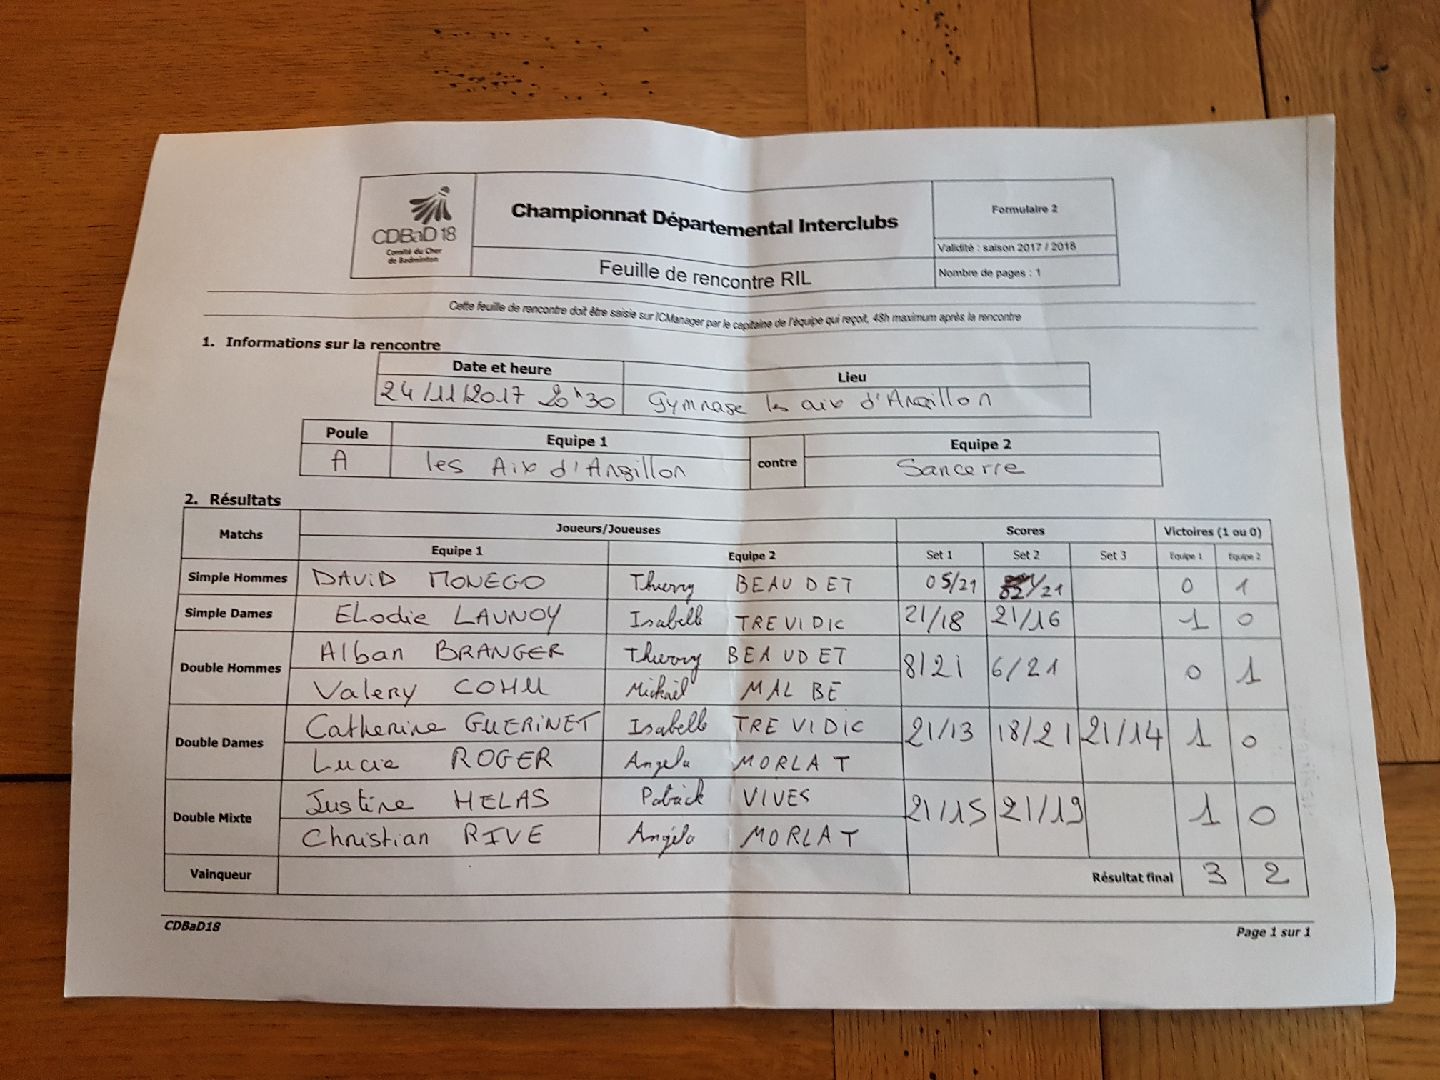 CDBaD 18
Comité du Cher
de Badminton
Championnat Départemental Interclubs
Feuille de rencontre RIL
Formulaire 2
Validité : saison 2017 / 2018
Nombre de pages : 1
Cette feuille de rencontre doit être saisie sur ICManager par le capitaine de l'équipe qui reçoit, 48h maximum après la rencontre
1. Informations sur la rencontre
Date et heure Lieu
24/11/2017 20h30 Gymnase les aix d'Angillon
Poule Equipe 1 contre Equipe 2
A les Aix d'Angillon Sancerre
2. Résultats
Matchs Joueurs/Joueuses Scores Victoires (1 ou 0)
Equipe 1 Equipe 2 Set 1 Set 2 Set 3 Equipe 1 Equipe 2
Simple Hommes DAVID MONEGO Thierry BEAUDET 05/21 /21 0 1
Simple Dames ELodie LAUNOY Isabelle TREVIDIC 21/18 21/16 1 0
Double Hommes Alban BRANGER Thierry BEAUDET 8/21 6/21 0 1
Valery COHU Mickaël MALBE
Double Dames Catherine GUERINET Isabelle TREVIDIC 21/13 18/21 21/14 1 0
Lucie ROGER Angela MORLAT
Double Mixte Justine HELAS Patrick VIVES 21/15 21/19 1 0
Christian RIVE Angela MORLAT
Vainqueur Résultat final 3 2
CDBaD18 Page 1 sur 1